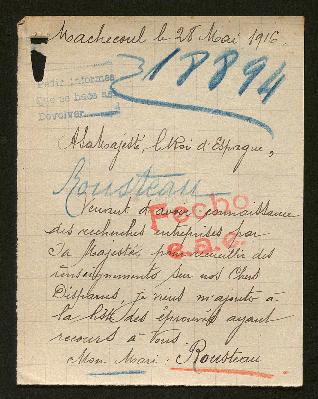 Machecoul le 28 Mai 1916.
18894
Pedir informes
Que se haga así
Devolver
A Sa Majesté, le Roi d'Espagne,
Rousteau
Venant d'avoir connaissance
Fecho
des recherches entreprises par
s.a.c.
Sa Majesté, pour recueillir des
renseignements sur nos Chers
Disparus, je viens m'ajouter à
la liste des éprouvés ayant
recours à Vous.
Mon Mari Rousteau